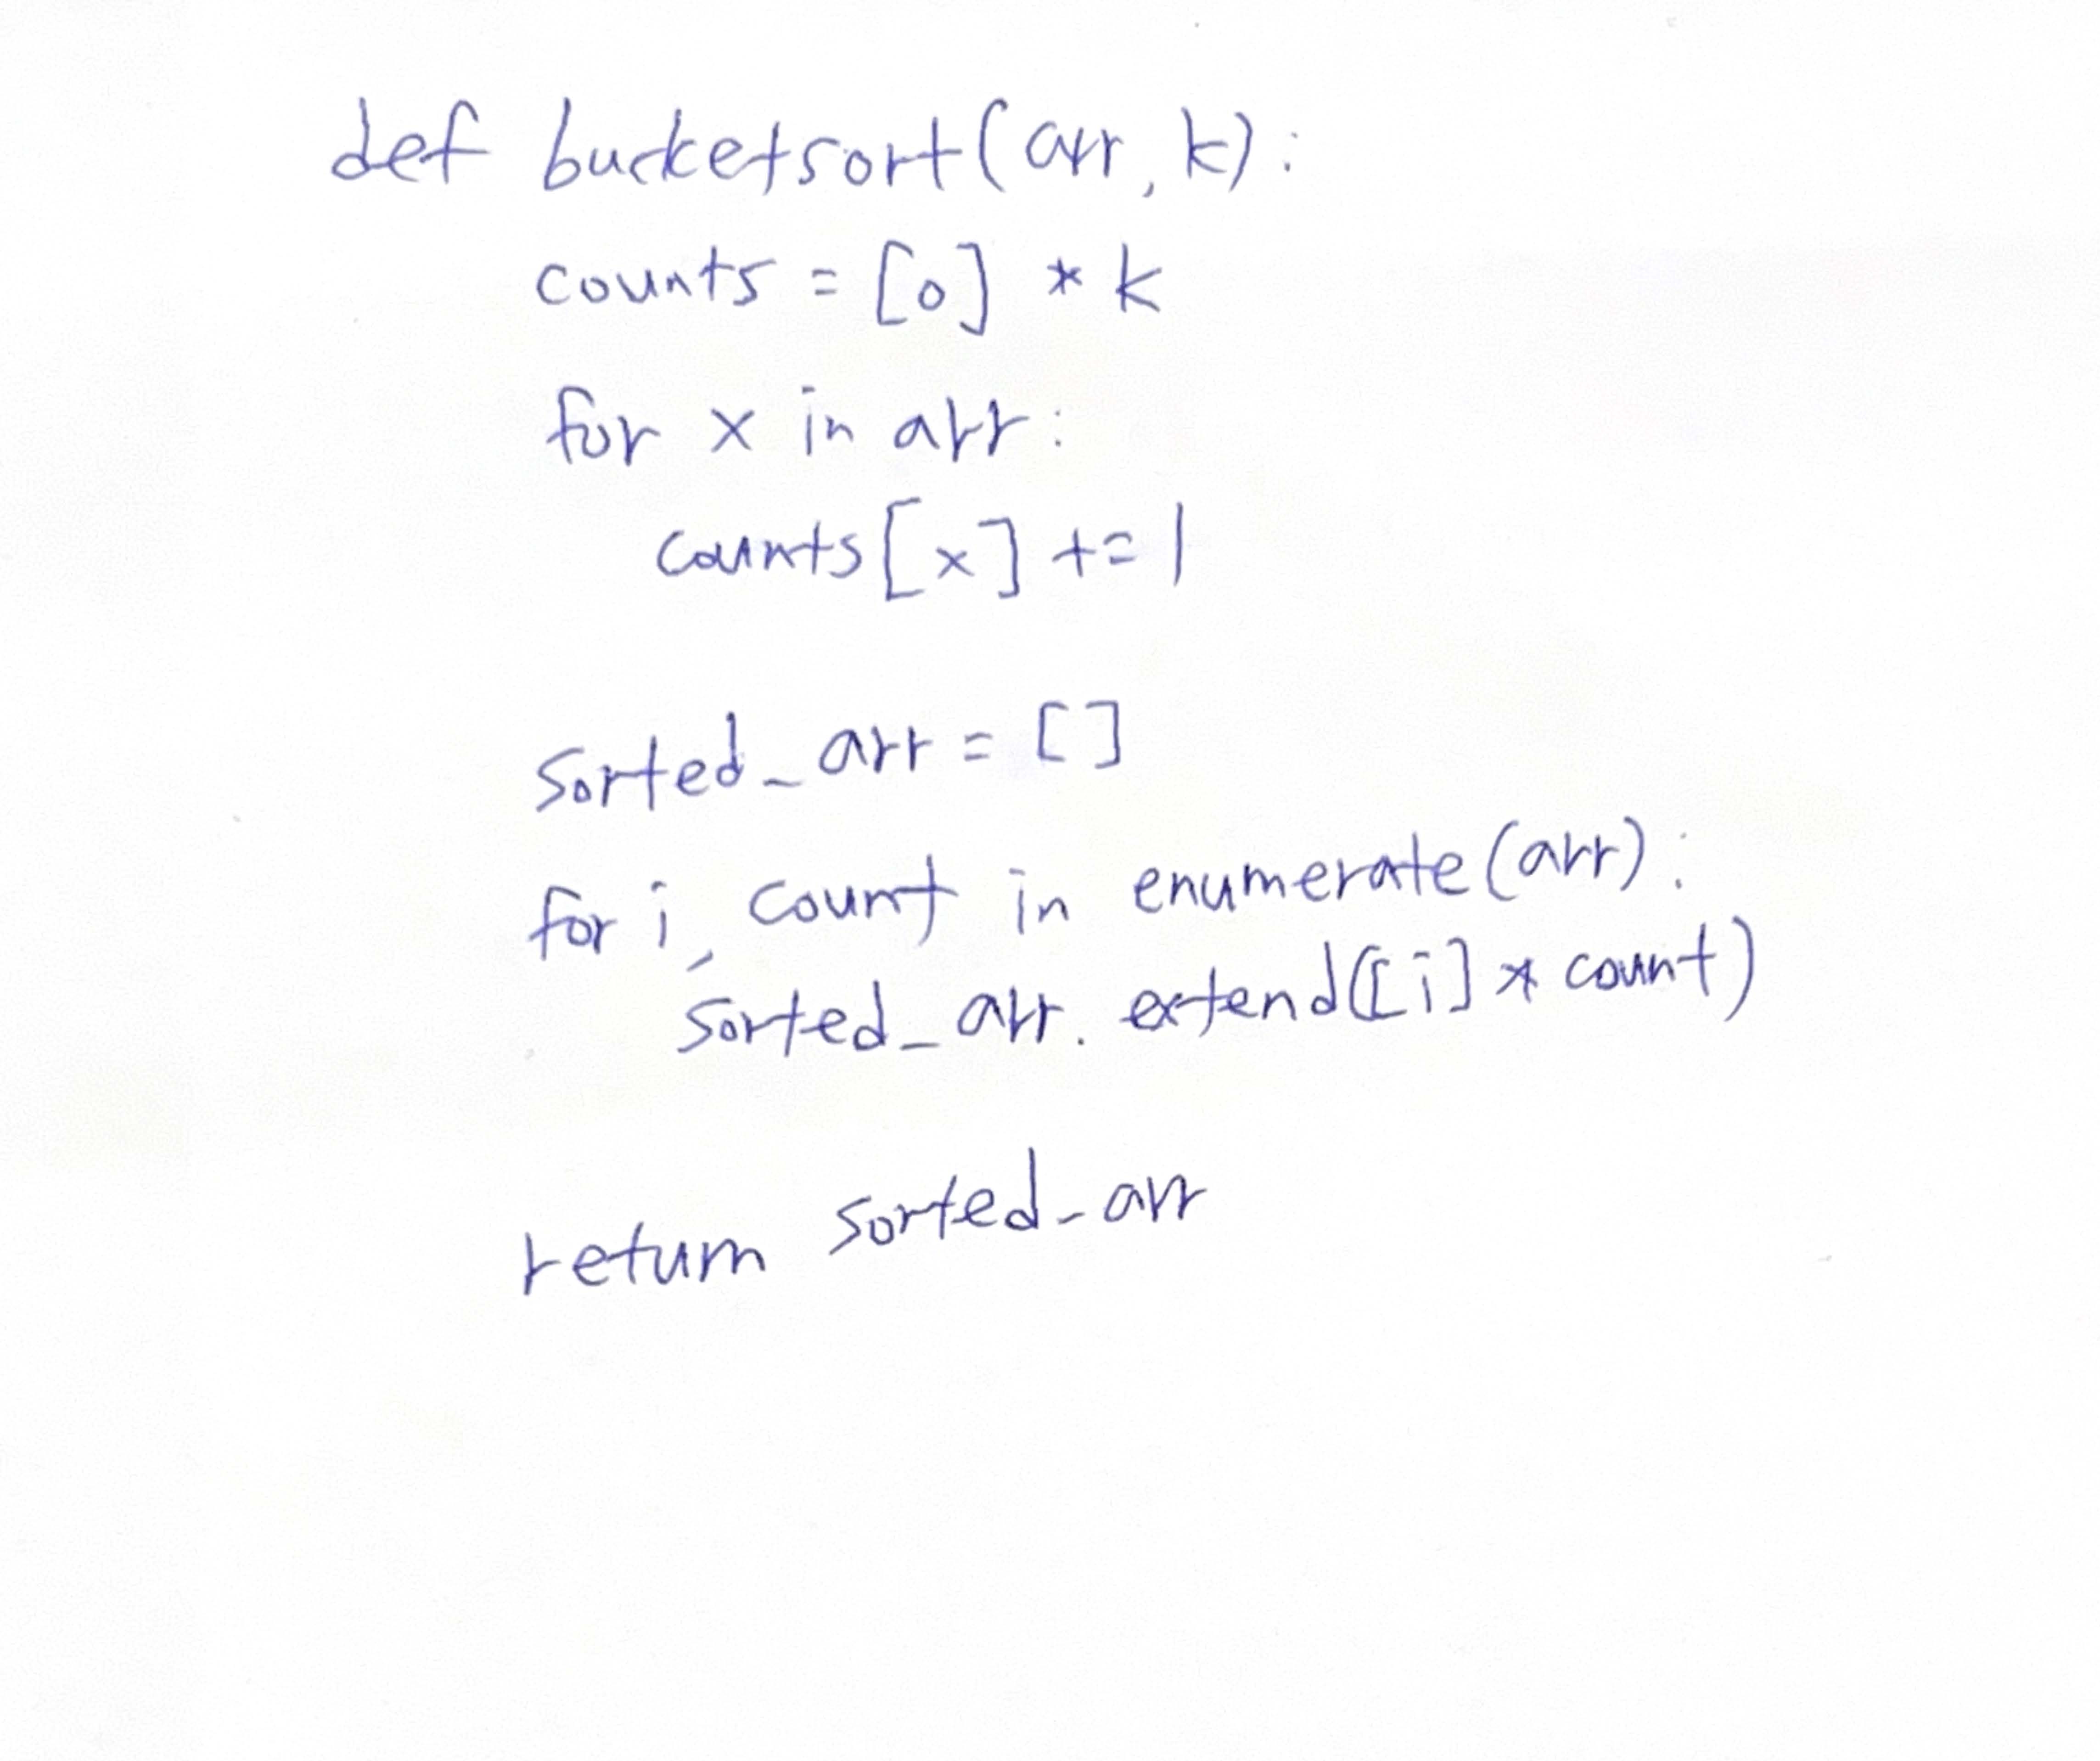 def bucketsort(arr, k):
counts = [0] * k
for x in arr:
counts[x] += 1
sorted_arr = []
for i, count in enumerate(arr):
sorted_arr.extend([i] * count)
return sorted_arr